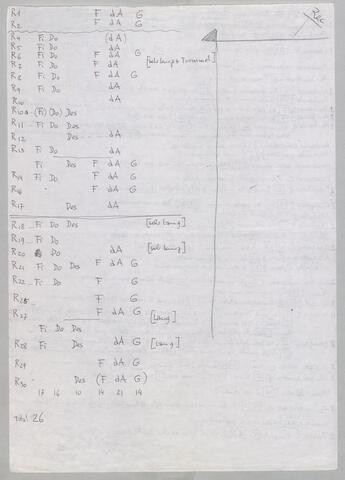 R1 F dA G
R2 F dA G
R4 Fi Do (dA)
R5 Fi Do dA
R6 Fi Do F dA G
R7 Fi Do F dA
R8 Fi Do F dA G
R9 Fi Do dA
R10 dA
R10a (Fi) (Do) Des
R11 Fi Do Des
R12 Des dA
R13 Fi Do dA
Fi Des F dA G
R14 Fi Do F dA G
R16 F dA G
R17 Des dA
R18 Fi Do Des
R19 Fi Do
R20 Do dA
R21 Fi Do Des F dA G
R22 Fi Do F G
R25 F G
R27 F dA G [lang]
Fi Do Des
R28 Fi Des dA G [lang]
R29 F dA G
R30 Des (F dA G)
17 16 10 14 21 14
total 26